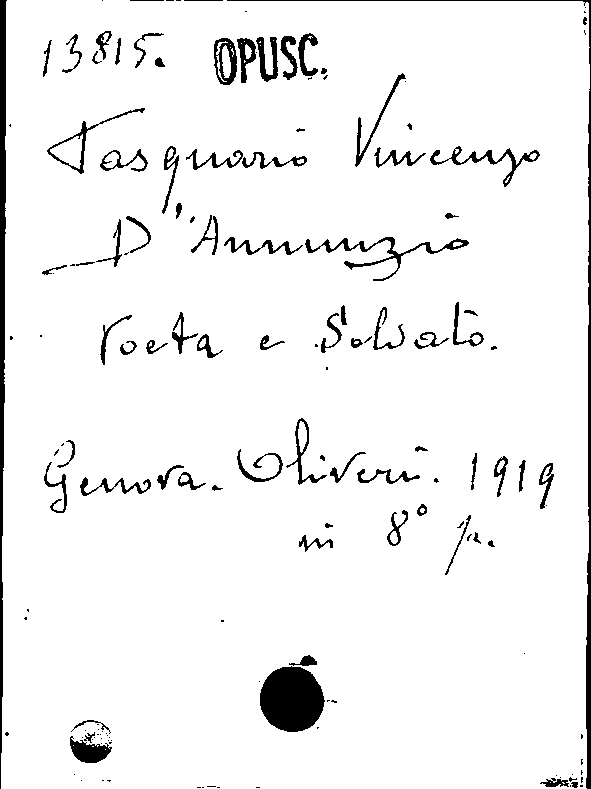 13815. OPUSC.
Pasquario Vincenzo
D'Annunzio
Poeta e Soldato.
Genova. Oliveri. 1919
in 8° p.